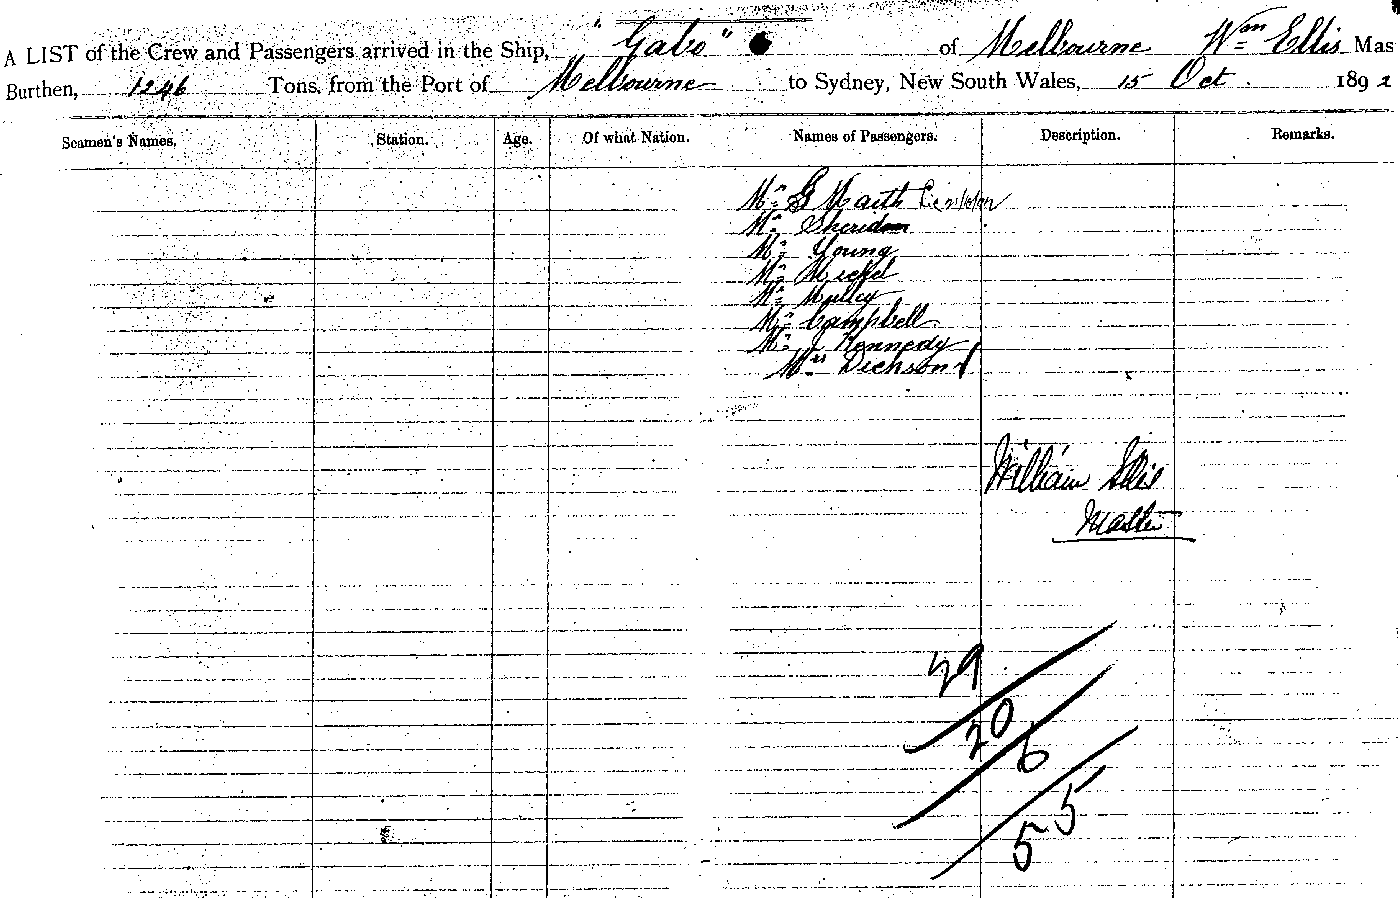 A LIST of the Crew and Passengers arrived in the Ship, "Gabo" of Melbourne Wm Ellis Mas
Burthen, 1246 Tons, from the Port of Melbourne to Sydney, New South Wales, 15 Oct. 1892
Seamen's Names, Station. Age. Of what Nation. Names of Passengers. Description. Remarks.
Mr G
Mr Sheridan
Mr Young
Mr
Mr
Mr Campbell
Mr J Kennedy
Mrs Dickson
William Ellis
Master
29
20
6
55